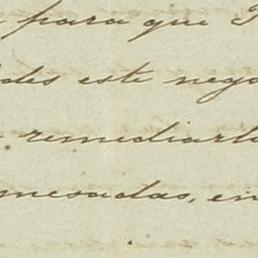 para que
este nego
remediarlo
mesadas, en